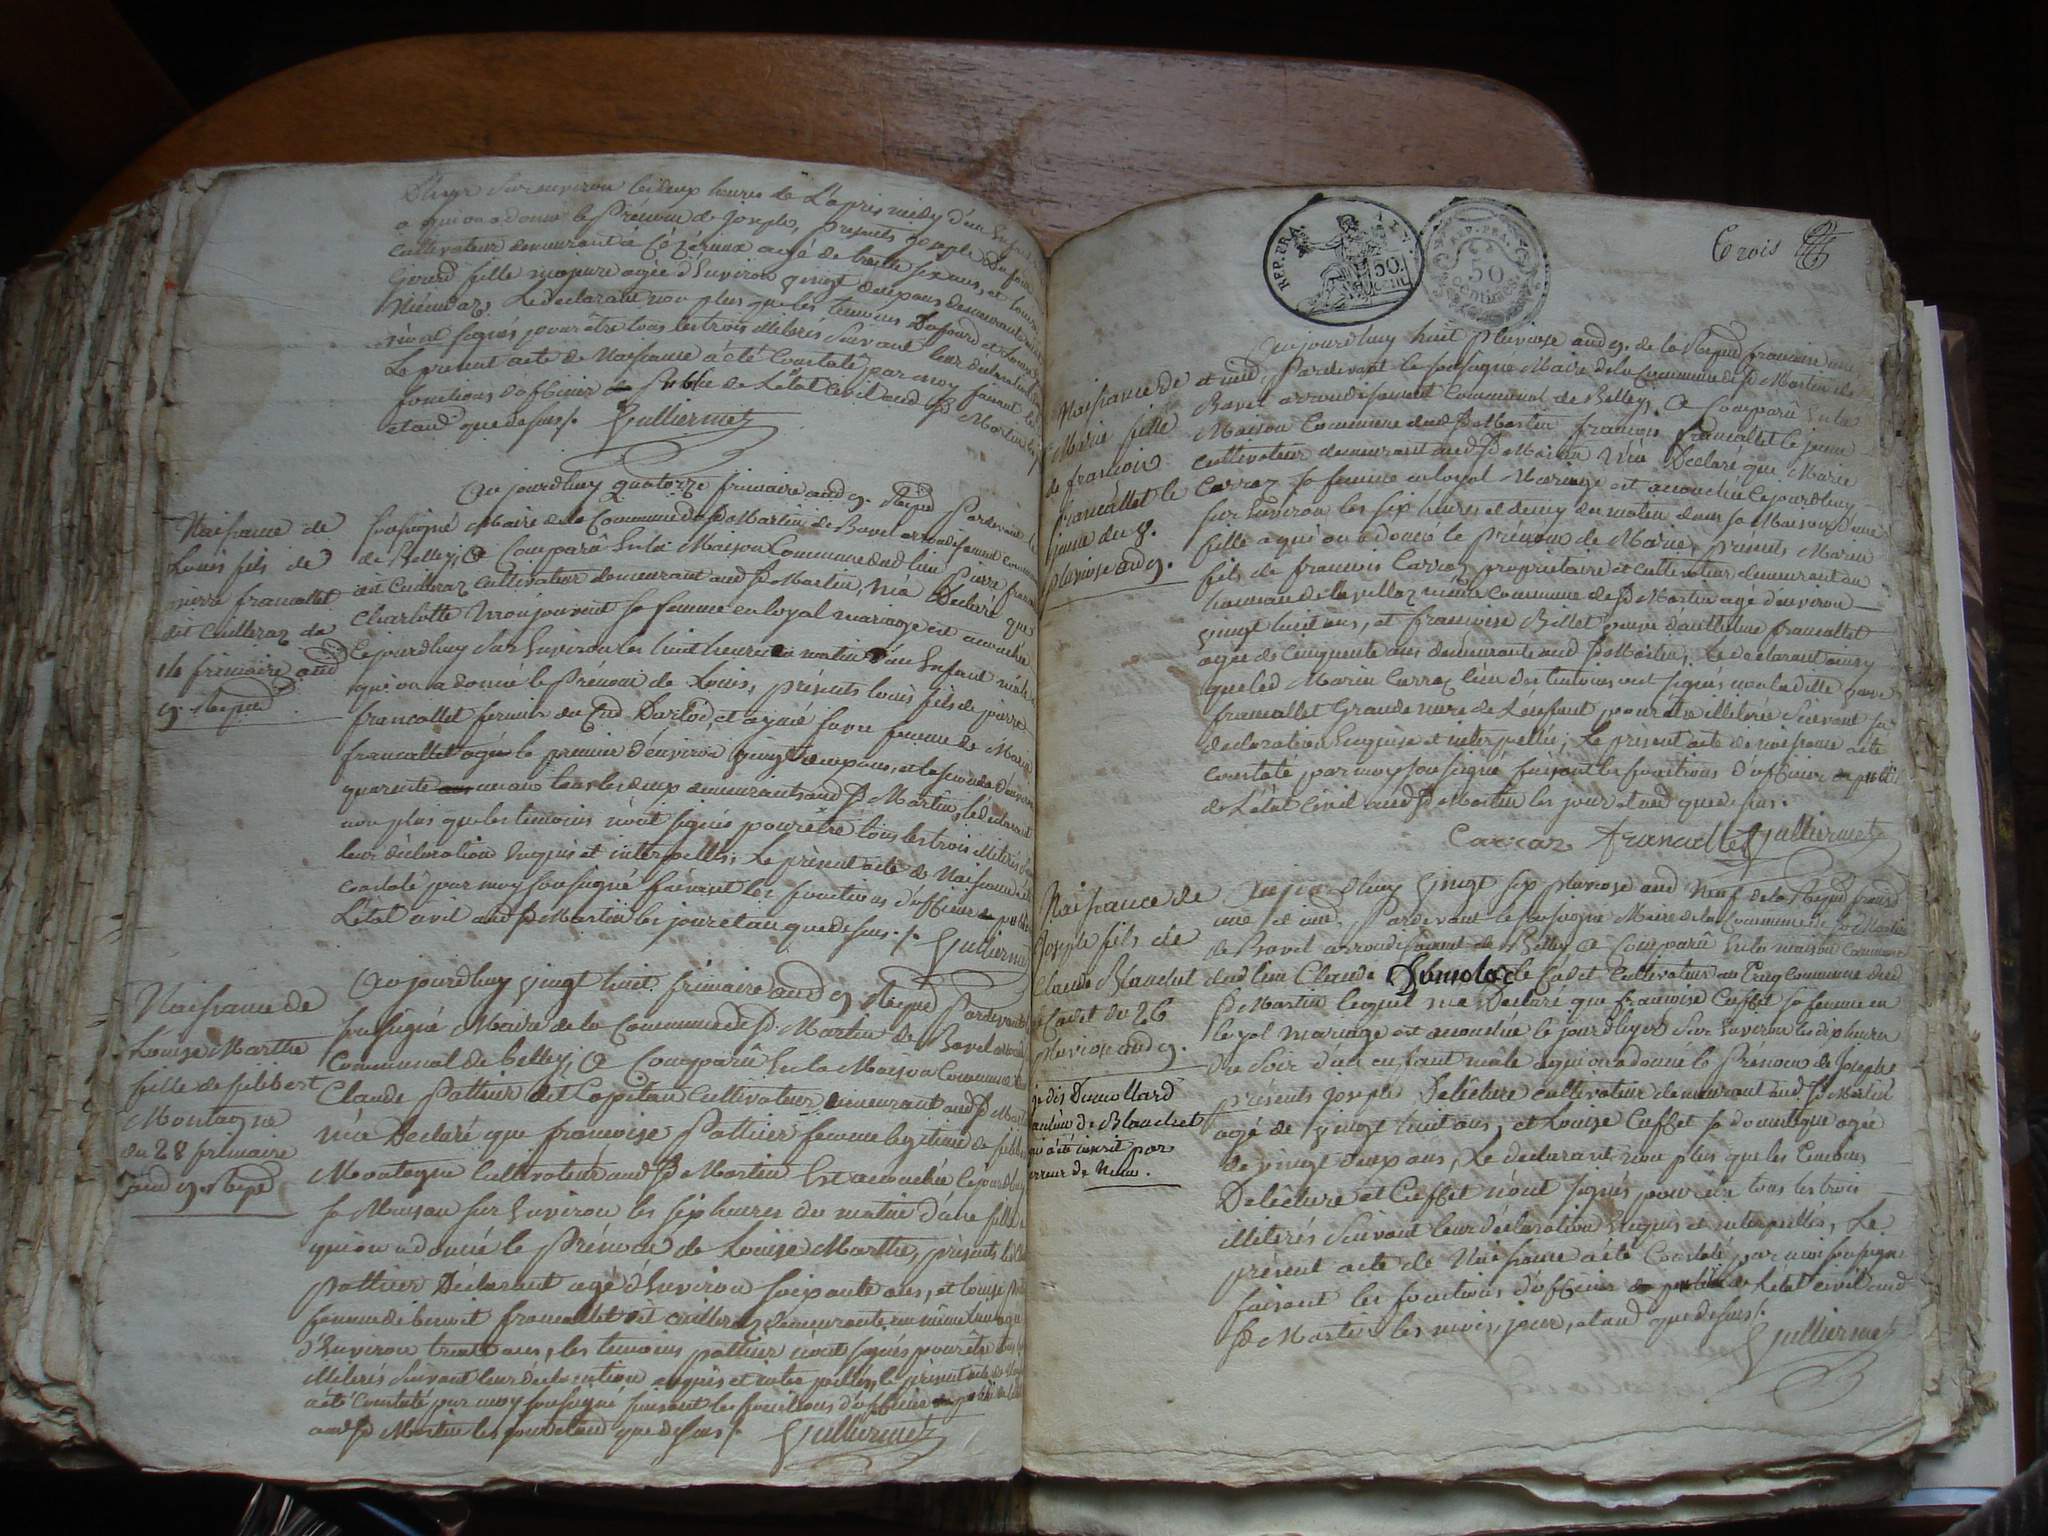 D'hyer sur environ les deux heures de L'apres midy d'un
a qui on a donné le Prénom de Joseph, Présents Joseph
Cultivateur demeurant à Cézérieux agé de trente six ans, et
Girerd fille majeure agée d'Environ vingt deux ans demeurante
Le declarant non plus que les temoins Dufour et
n'ont signés pour être tous les trois illiterés Suivant leur déclaration
Le present acte de Naissance à été Constaté par moy faisant les
fonctions d'officier Public de L'état Civil aud St Martin
et and que dessus /. Gulliermet
Naissance de
Louis fils de
pierre francallet
dit Cuilleraz du
14 frimaire and
9. Repud
Aujourdhuy quatorze frimaire and 9. Repud Pardevant
soussigné Maire de la Commune de St Martin de Bavel arrondissement
de Belley, a Comparû En la Maison Commune dud lieu Pierre
dit Cuilleraz Cultivateur demeurant aud St Martin, m'a Declaré que
Charlotte Monjouvent sa femme en loyal mariage est accouchée
Cejourdhuy Sur Environ les huit heures du matin d'un Enfant mâle
qu'on a donné le Prénom de Louis, présents Louis fils de pierre
francallet fermier du Cnd et femme de
francallet agés le premier d'environ vingt deux ans, et la seconde d'environ
quarente un ans tous les deux demeurants aud St Martin, le declarant
non plus que les temoins n'ont signés pour être tous les trois illiterés
leur déclaration Enquis et interpellés, Le présent acte de Naissance
Constaté par moy soussigné faisant les fonctions d'officier public
L'état civil aud St Martin les jour et an que dessus. /. Gulliermet
Naissance de
Louise Marthe
fille de filibert
Montagne
du 28 frimaire
and 9. Repd
Aujourdhuy vingt huit frimaire and 9 Repud Pardevant
soussigné Maire de la Commune de St. Martin de Bavel
Communal de Belley, a Comparû En la Maison Commune
Claude Pottier dit Capitan Cultivateur demeurant aud St
m'a Declaré que françoise Pottier femme legitime de
Montagne Cultivateur aud St Martin Est accouchée cejourdhuy
sa Maison sur Environ les six heures du matin d'une fille
qu'on a donné le Prénom de Louise Marthe, présents
pottier Déclarant agé d'Environ soixante ans, et Louise
femme de benoit francallet dit Cuilleraz demeurante
d'Environ trente ans, les temoins pottier n'ont signés pour être
illiterés Suivant leur déclaration enquis et interpellés, le présent acte
a été Constaté par moy soussigné faisant les fonctions d'officier public
aud St Martin les jour et and que dessus /. Gulliermet
REP. FRA.
50.
CENT.
REP. FRA.
50
centimes
Trois
Naissance de
Marie fille
de francois
francallet le
jeune du 8.
pluviose and 9.
Aujourdhuy huit Pluviose and 9. de la Repud francoise une
et indi, Pardevant le soussigné Maire de la Commune de St Martin de
Bavel arrondissement Communal de Belley, a Comparû En la
Maison Commune dud St Martin francois francallet le jeune
cultivateur demeurant aud St Martin M'a Declaré que Marie
Carraz sa femme en loyal Mariage est accouchée cejourdhuy
sur Environ les six heures et demy du matin dans sa Maison d'une
fille a qui on a donné le Prénom de Marie, présents Marin
fils de francois Carraz propriétaire et cultivateur demeurant au
hameau de la villaz même Commune de St Martin agé d'environ
vingt huit ans, et francoise Billet veuve d'anthelme francallet
agée de Cinquente ans demeurante aud St Martin; Le declarant ainsy
que led Marin Carraz l'un des temoins ont signés non ladite veuve
francallet Grande mere de L'enfant pour être illiterée Suivant sa
déclaration Enquise et interpellée; Le présent acte de naissance a été
constaté par moy soussigné faisant les fonctions d'officier public
de L'état Civil aud St Martin les jour et and que dessus.
Carraz francallet Gulliermet
Naissance de
Joseph fils de
Claude Blanchet
le Cadet du 26
pluviose and 9.
je dis Dumollard
au lieu de Blanchet
qui a été inscrit par
erreur de Nom.
Aujourdhuy vingt six pluviose and Neuf de la Repud francd
une et ind. Pardevant le soussigné Maire de la Commune de St Martin
de Bavel arrondissement de Belley a Comparû En la maison Commune
dud lieu Claude Dumolard le Cadet Cultivateur au Commune dud
St Martin lequel m'a Declaré que francoise Cuffet sa femme en
loyal mariage est accouchée le jourdhyer Sur Environ les dix heures
du Soir d'un enfant mâle a qui on a donné le Prénom de Joseph
présents Joseph Delêture cultivateur demeurant aud St Martin
agé de vingt huit ans, et Louise Cuffet sa domestique agée
de vingt deux ans, Le declarant non plus que les Temoins
Delêture et Cuffet n'ont signés pour être tous les trois
illiterés Suivant leur déclaration Enquis et interpellés, Le
présent acte de Naissance a été Constaté par moi soussigné
faisant les fonctions d'officier public de L'état civil aud
St Martin les mois, jour, et and que dessus /.
Gulliermet